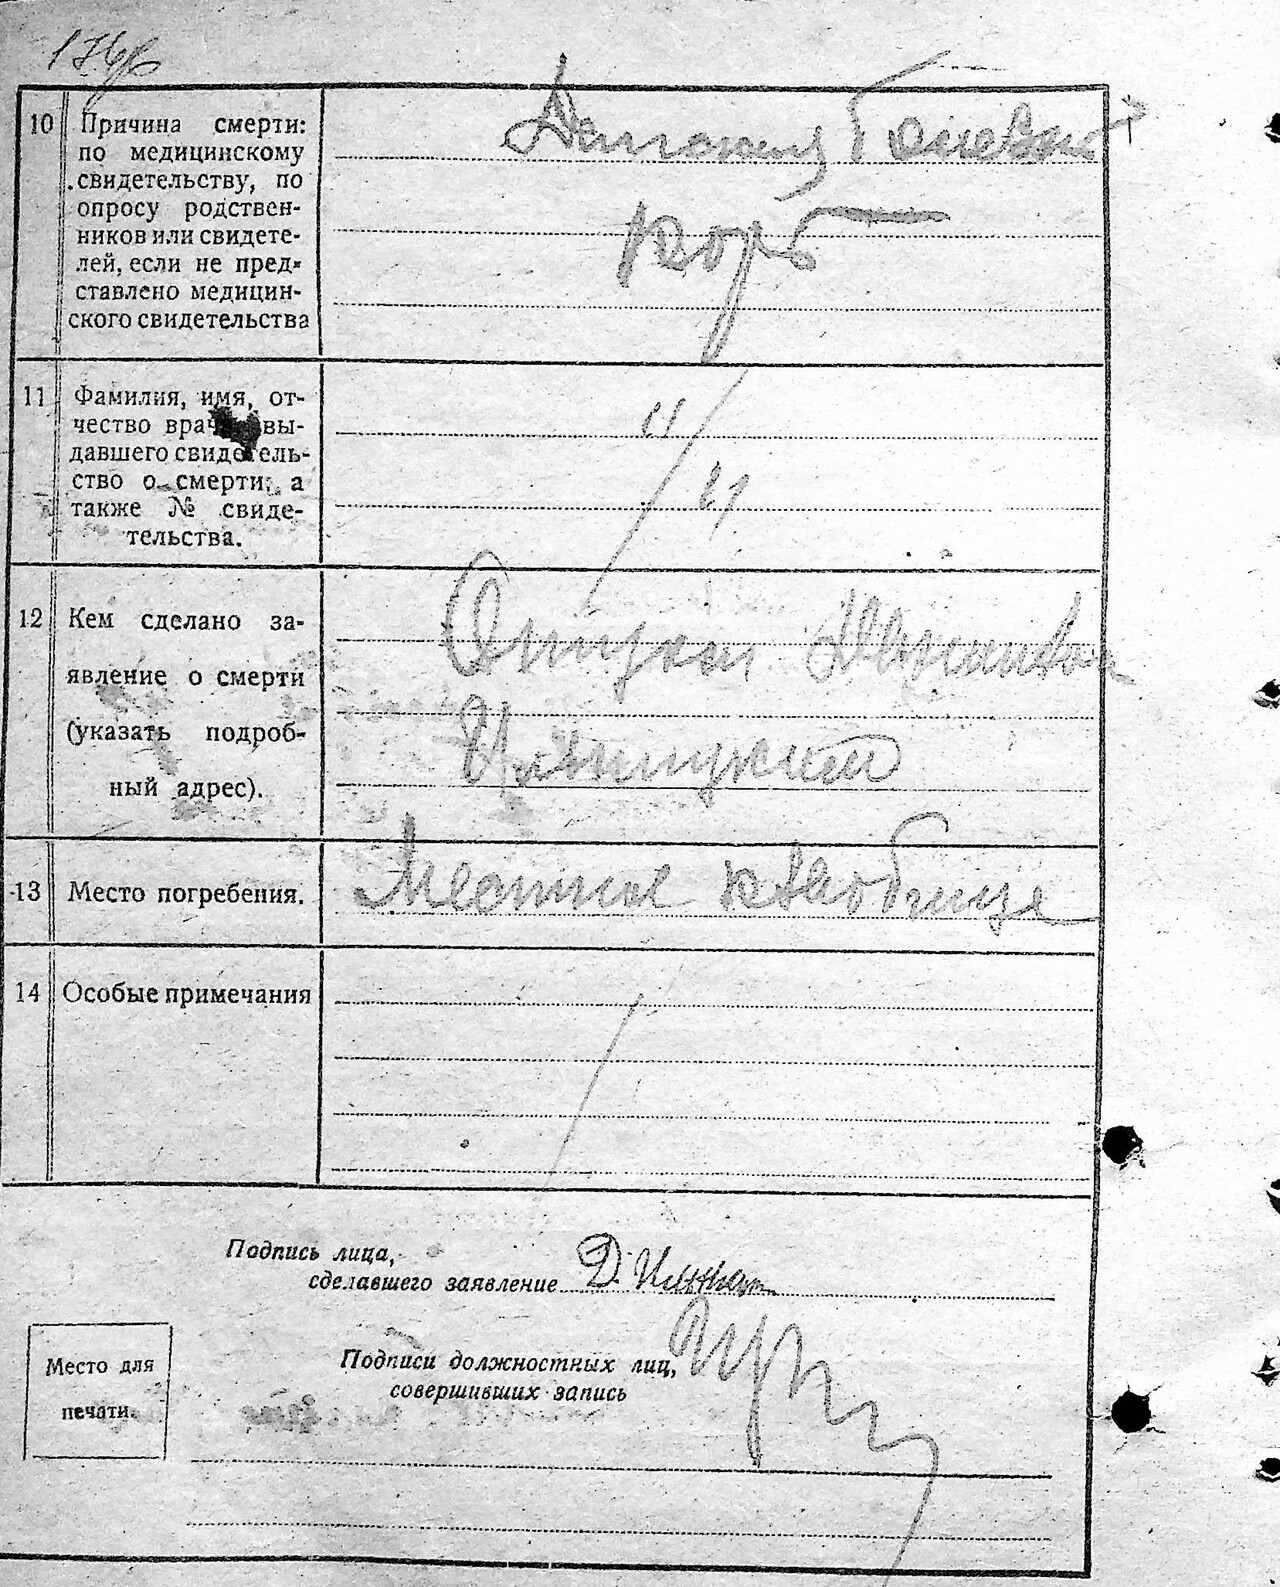 10
Причина смерти:
по медицинскому
свидетельству, по
опросу родствен-
ников или свидете-
лей, если не пред-
ставлено медицин-
ского свидетельства
Детская
корь
11
Фамилия, имя, от-
чество врача, вы-
давшего свидетель-
ство о смерти, а
также № свиде-
тельства.
12
Кем сделано за-
явление о смерти
(указать подроб-
ный адрес).
13
Место погребения.
Местное кладбище
14
Особые примечания
Подпись лица,
сделавшего заявление Д.
Место для
печати.
Подписи должностных лиц,
совершивших запись